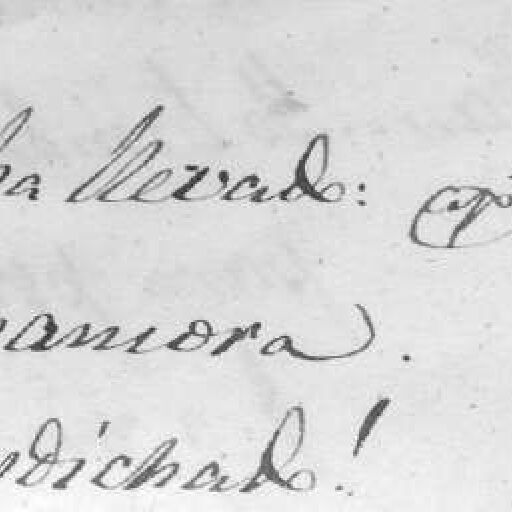 ha llevado:
namora.
sdichado!